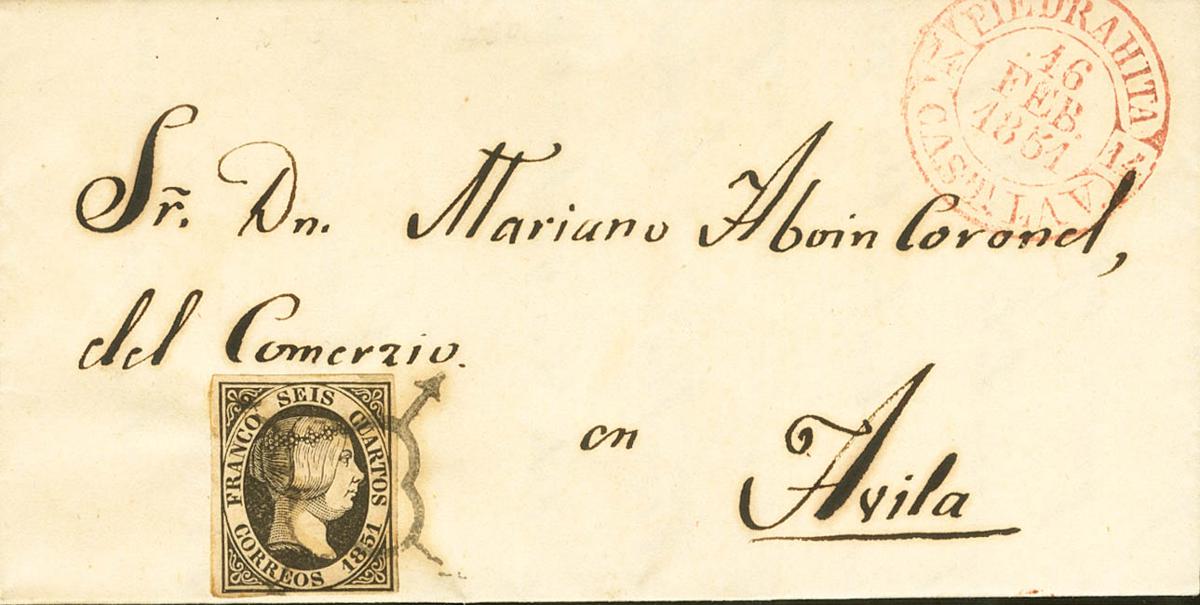 PIEDRAHITA
16
FEB.
1851
Sr. Dn. Mariano Aboin Coronel,
del Comerzio.
en Avila
FRANCO SEIS CUARTOS
CORREOS 1851